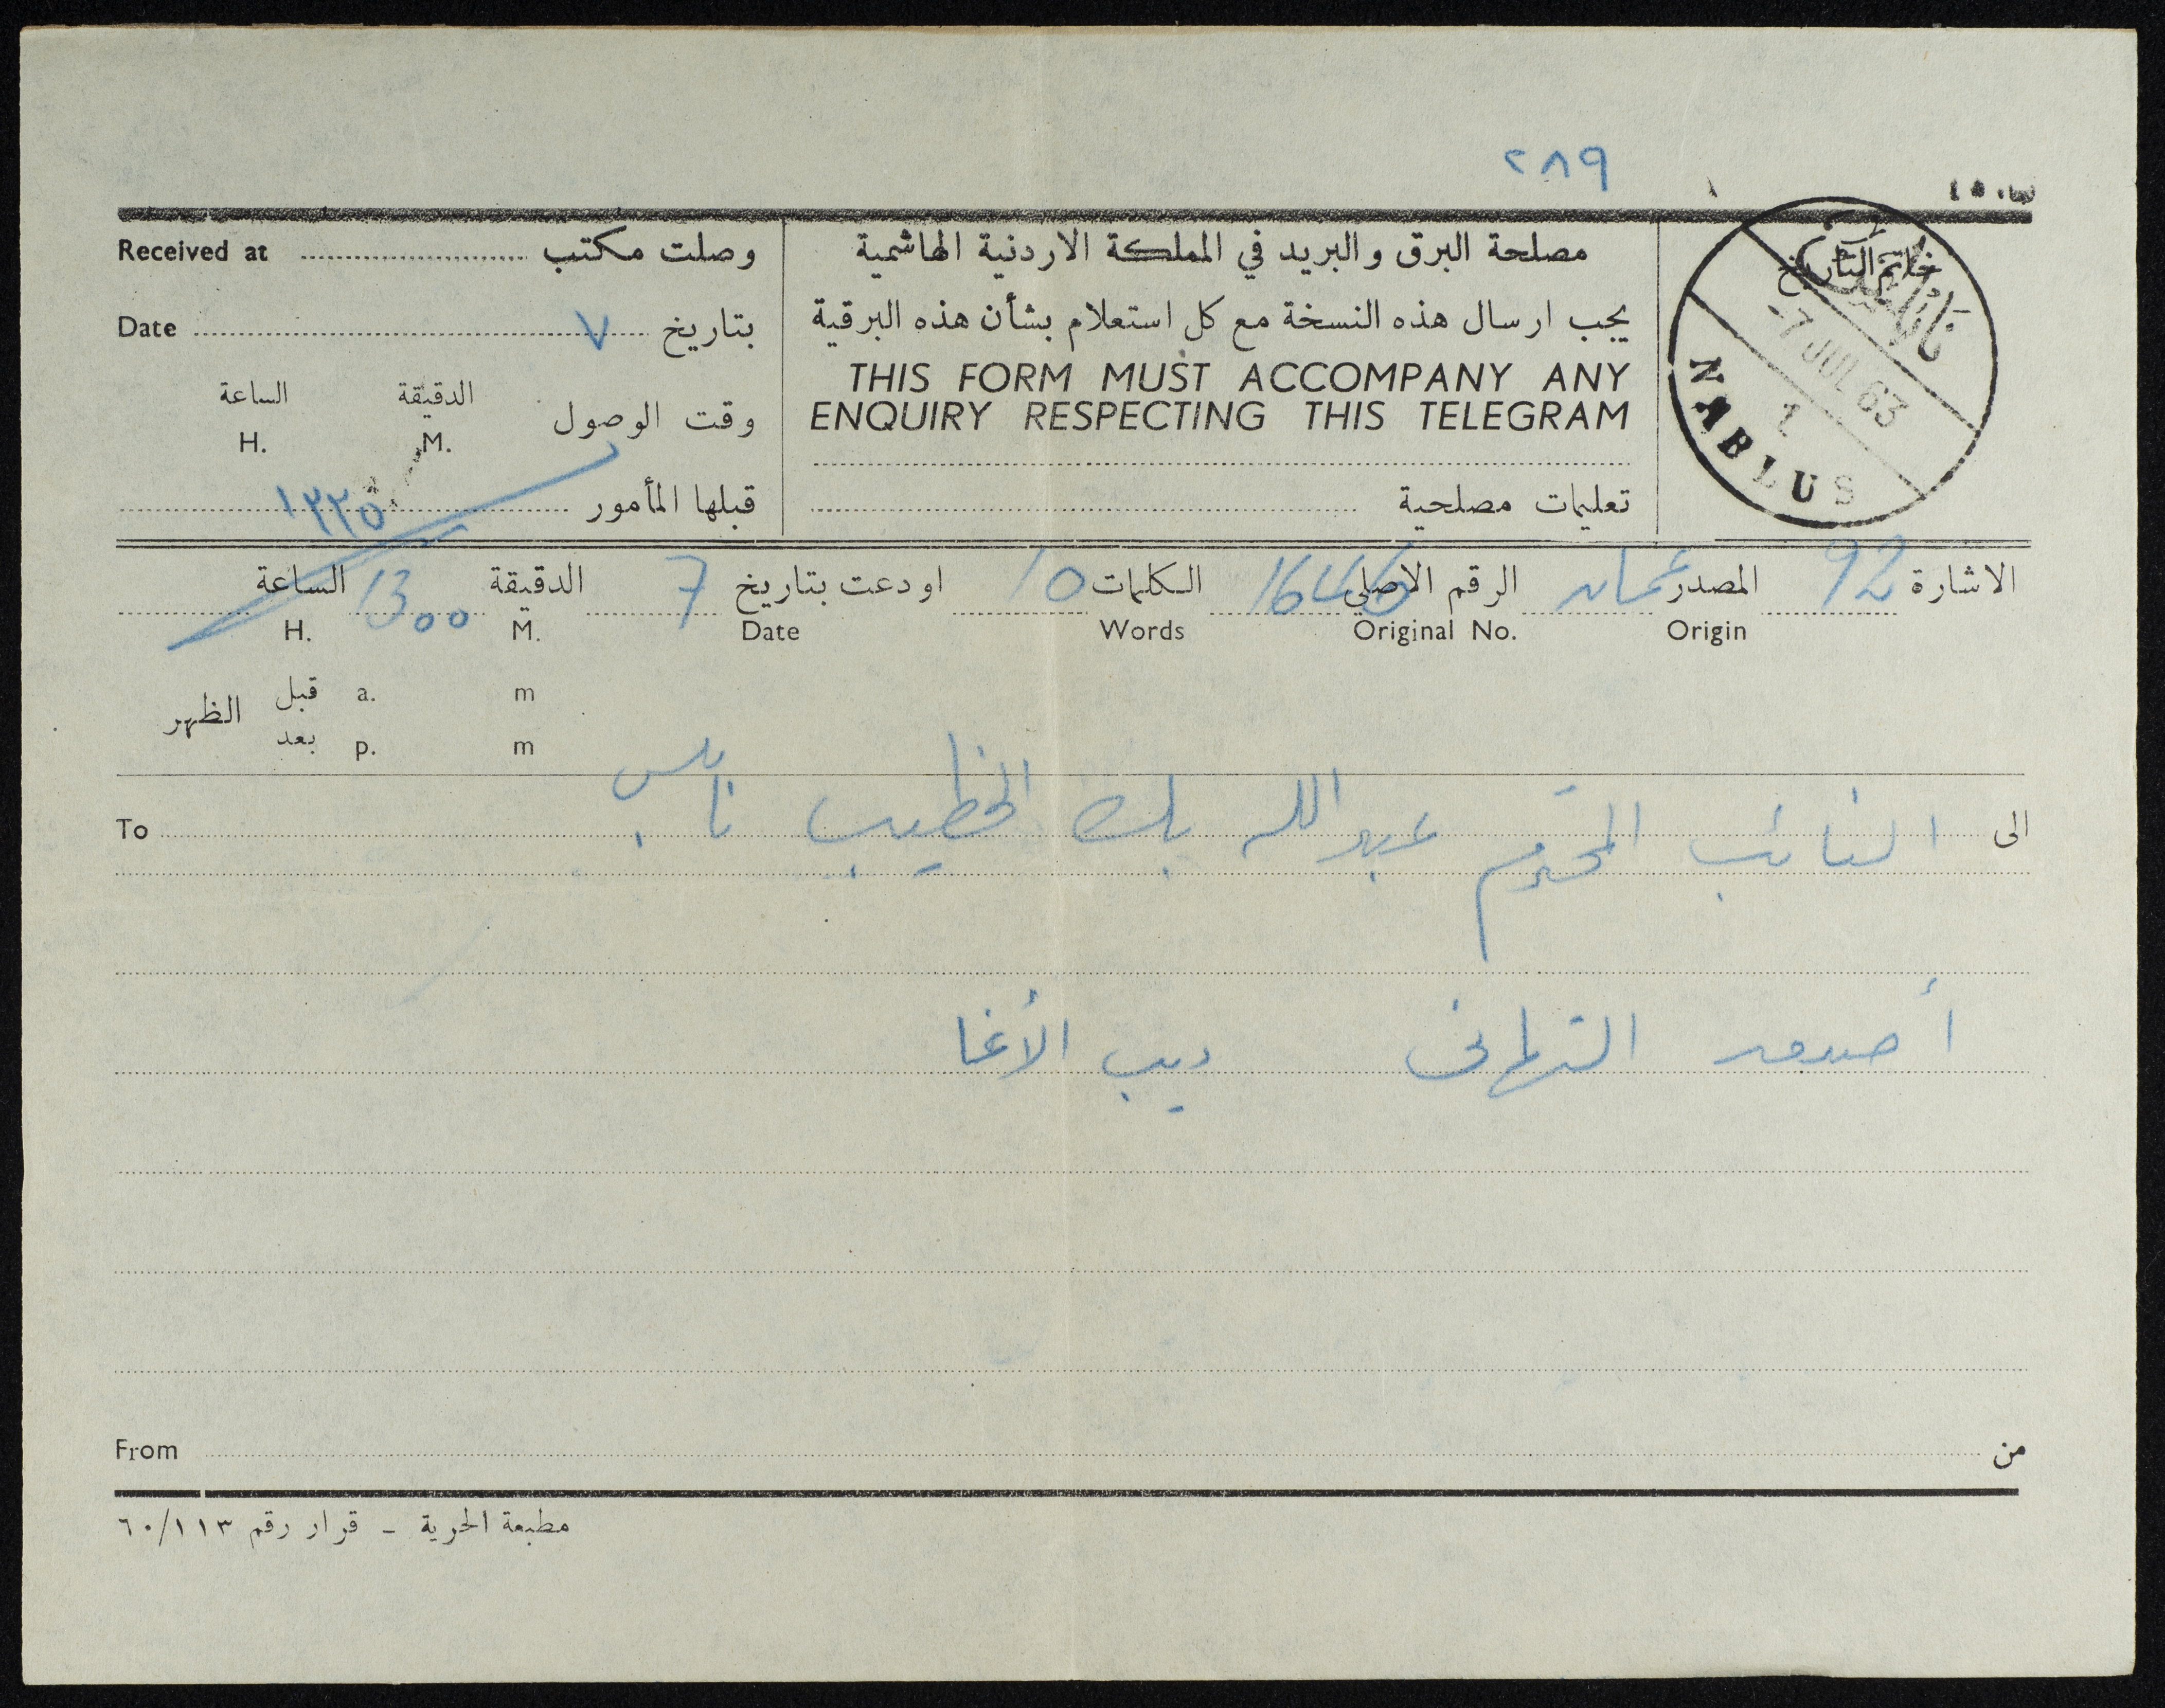 ٢٨٩
مصلحة البرق والبريد في المملكة الاردنية الهاشمية
يجب ارسال هذه النسخة مع كل استعلام بشأن هذه البرقية
THIS FORM MUST ACCOMPANY ANY
ENQUIRY RESPECTING THIS TELEGRAM
تعليمات مصلحية
خاتم التاريخ
نابلس
-7 JUL 63
1
NABLUS
وصلت مكتب Received at
بتاريخ ٧ Date
وقت الوصول الدقيقة الساعة
M. H.
قبلها المأمور ١٣٣٥
الاشارة 92 المصدر عمان الرقم الاصلي الكلمات 10 اودعت بتاريخ 7 الدقيقة 1300 الساعة
Origin Original No. Words Date M. H.
الظهر قبل a. m
بعد p. m
الى النائب المحترم عبدالله بك الخطيب نابلس To
أصدق التهاني ديب الأغا
من From
مطبعة الحرية - قرار رقم ٦٠/١١٣